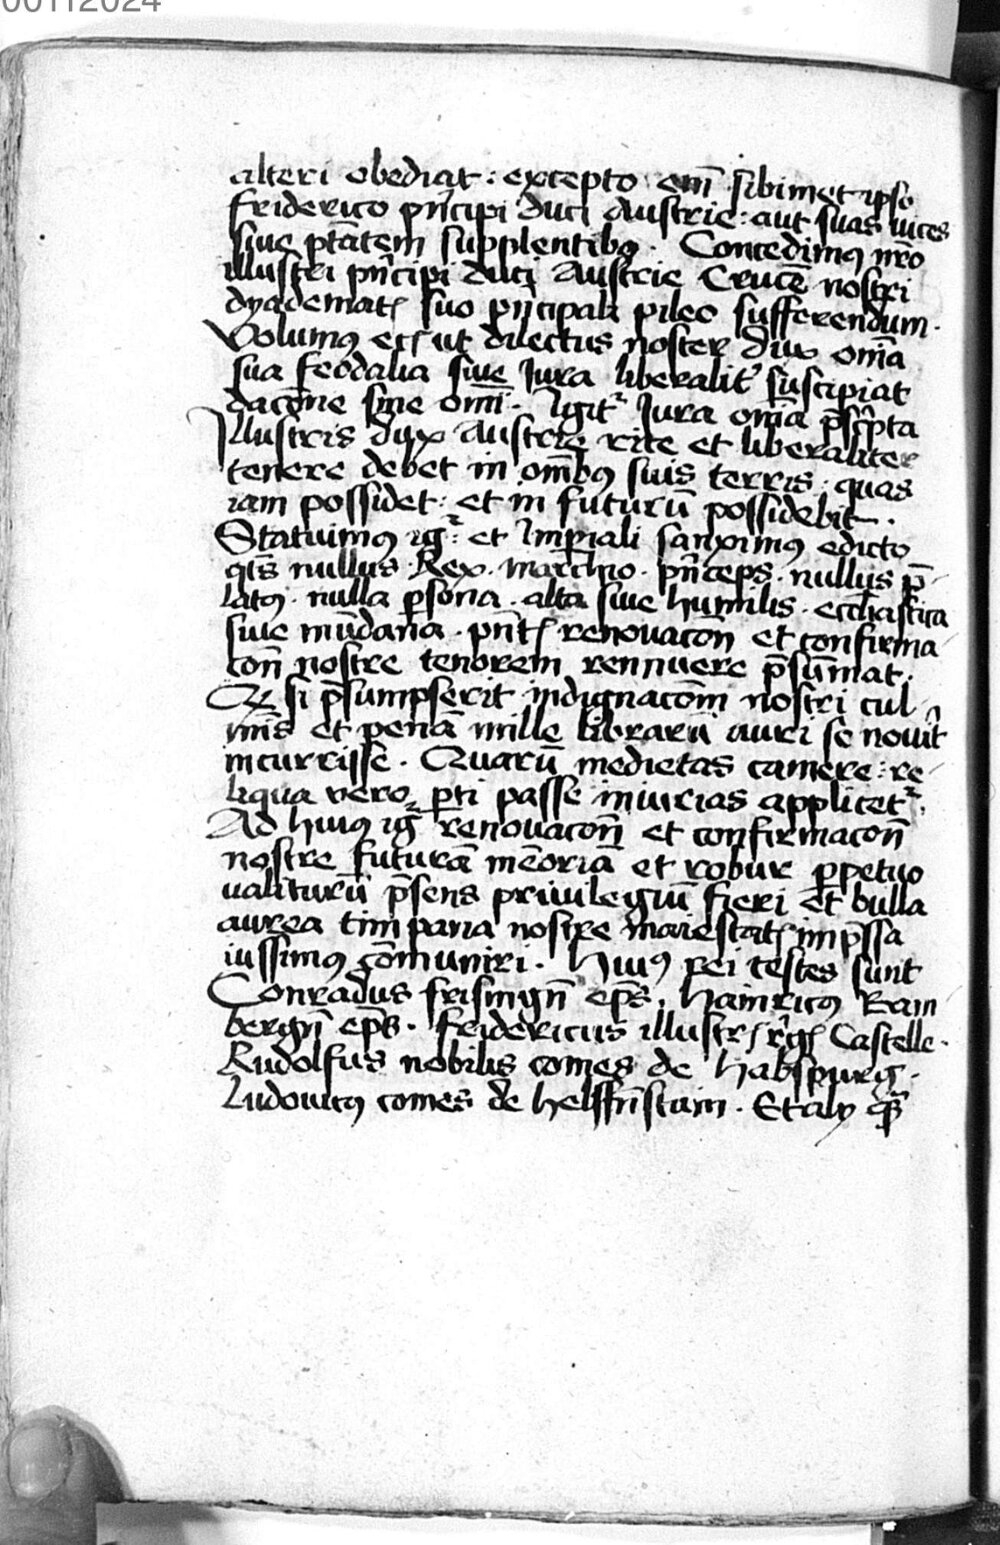 00112024
alteri obediat : excepto em̄ sibimet ipso
friderico pn̄cipi duci Austrie : aut suas uices
siue ptātem supplentibꝰ . Concedimꝰ nr̄o
illustri pn̄cipi duci Austrie Crucē nostri
dyadematꝭ suo pn̄cipali pileo sufferendum .
Volumꝰ ecī ut dilectus noster dux om̄ia
sua feodalia siue Jura liberalit᷑ suscipiat
dacōne sine om̄i . Igit᷑ Jura om̄ia p̄sc̄pta
Illustris dux Austrie rite et liberaliter
tenere debet in om̄ibꝰ suis terris : quas
iam possidet : et in futurū possidebit .
Statuimꝰ ig᷑ : et Imp̄iali sanximꝰ edicto
qt̄s nullus Rex . marchio . pn̄ceps . nullus p̄
latꝰ . nulla p̄sona . alta siue humilis . eccl̄iastica
siue mūdana . pn̄tꝭ renouacōn̄ et confirma
con̄ nostre tenorem rennuere p̄sūmat .
Qꝫ si p̄sumpserit indignacōm̄ nostri cul
mīs et penā mille librarū auri se nouīt
incurrisse . Quarū medietas camere : re
liqua vero p̄ti passe iniurias applicet᷑ .
Ad huiꝰ ig᷑ renouacōn̄ et confirmacōn̄
nostre futurā mēoriā et robur p̄petuo
ualiturū p̄sens priuilegiū fieri et bulla
aurea timparia nostre maiestatꝭ imp̄ssa
iussimꝰ cōmuniri . Huiꝰ rei testes sunt
Conradus frisingn̄ ep̄s . Hainricꝰ Bam
bergn̄ ep̄s . Fridericus illustrꝭ r̄gꝭ Castelle .
Rudolfus nobilis comes de Habspurg .
Ludouicꝰ comes de helffn̄stain . Et alij qꝫ